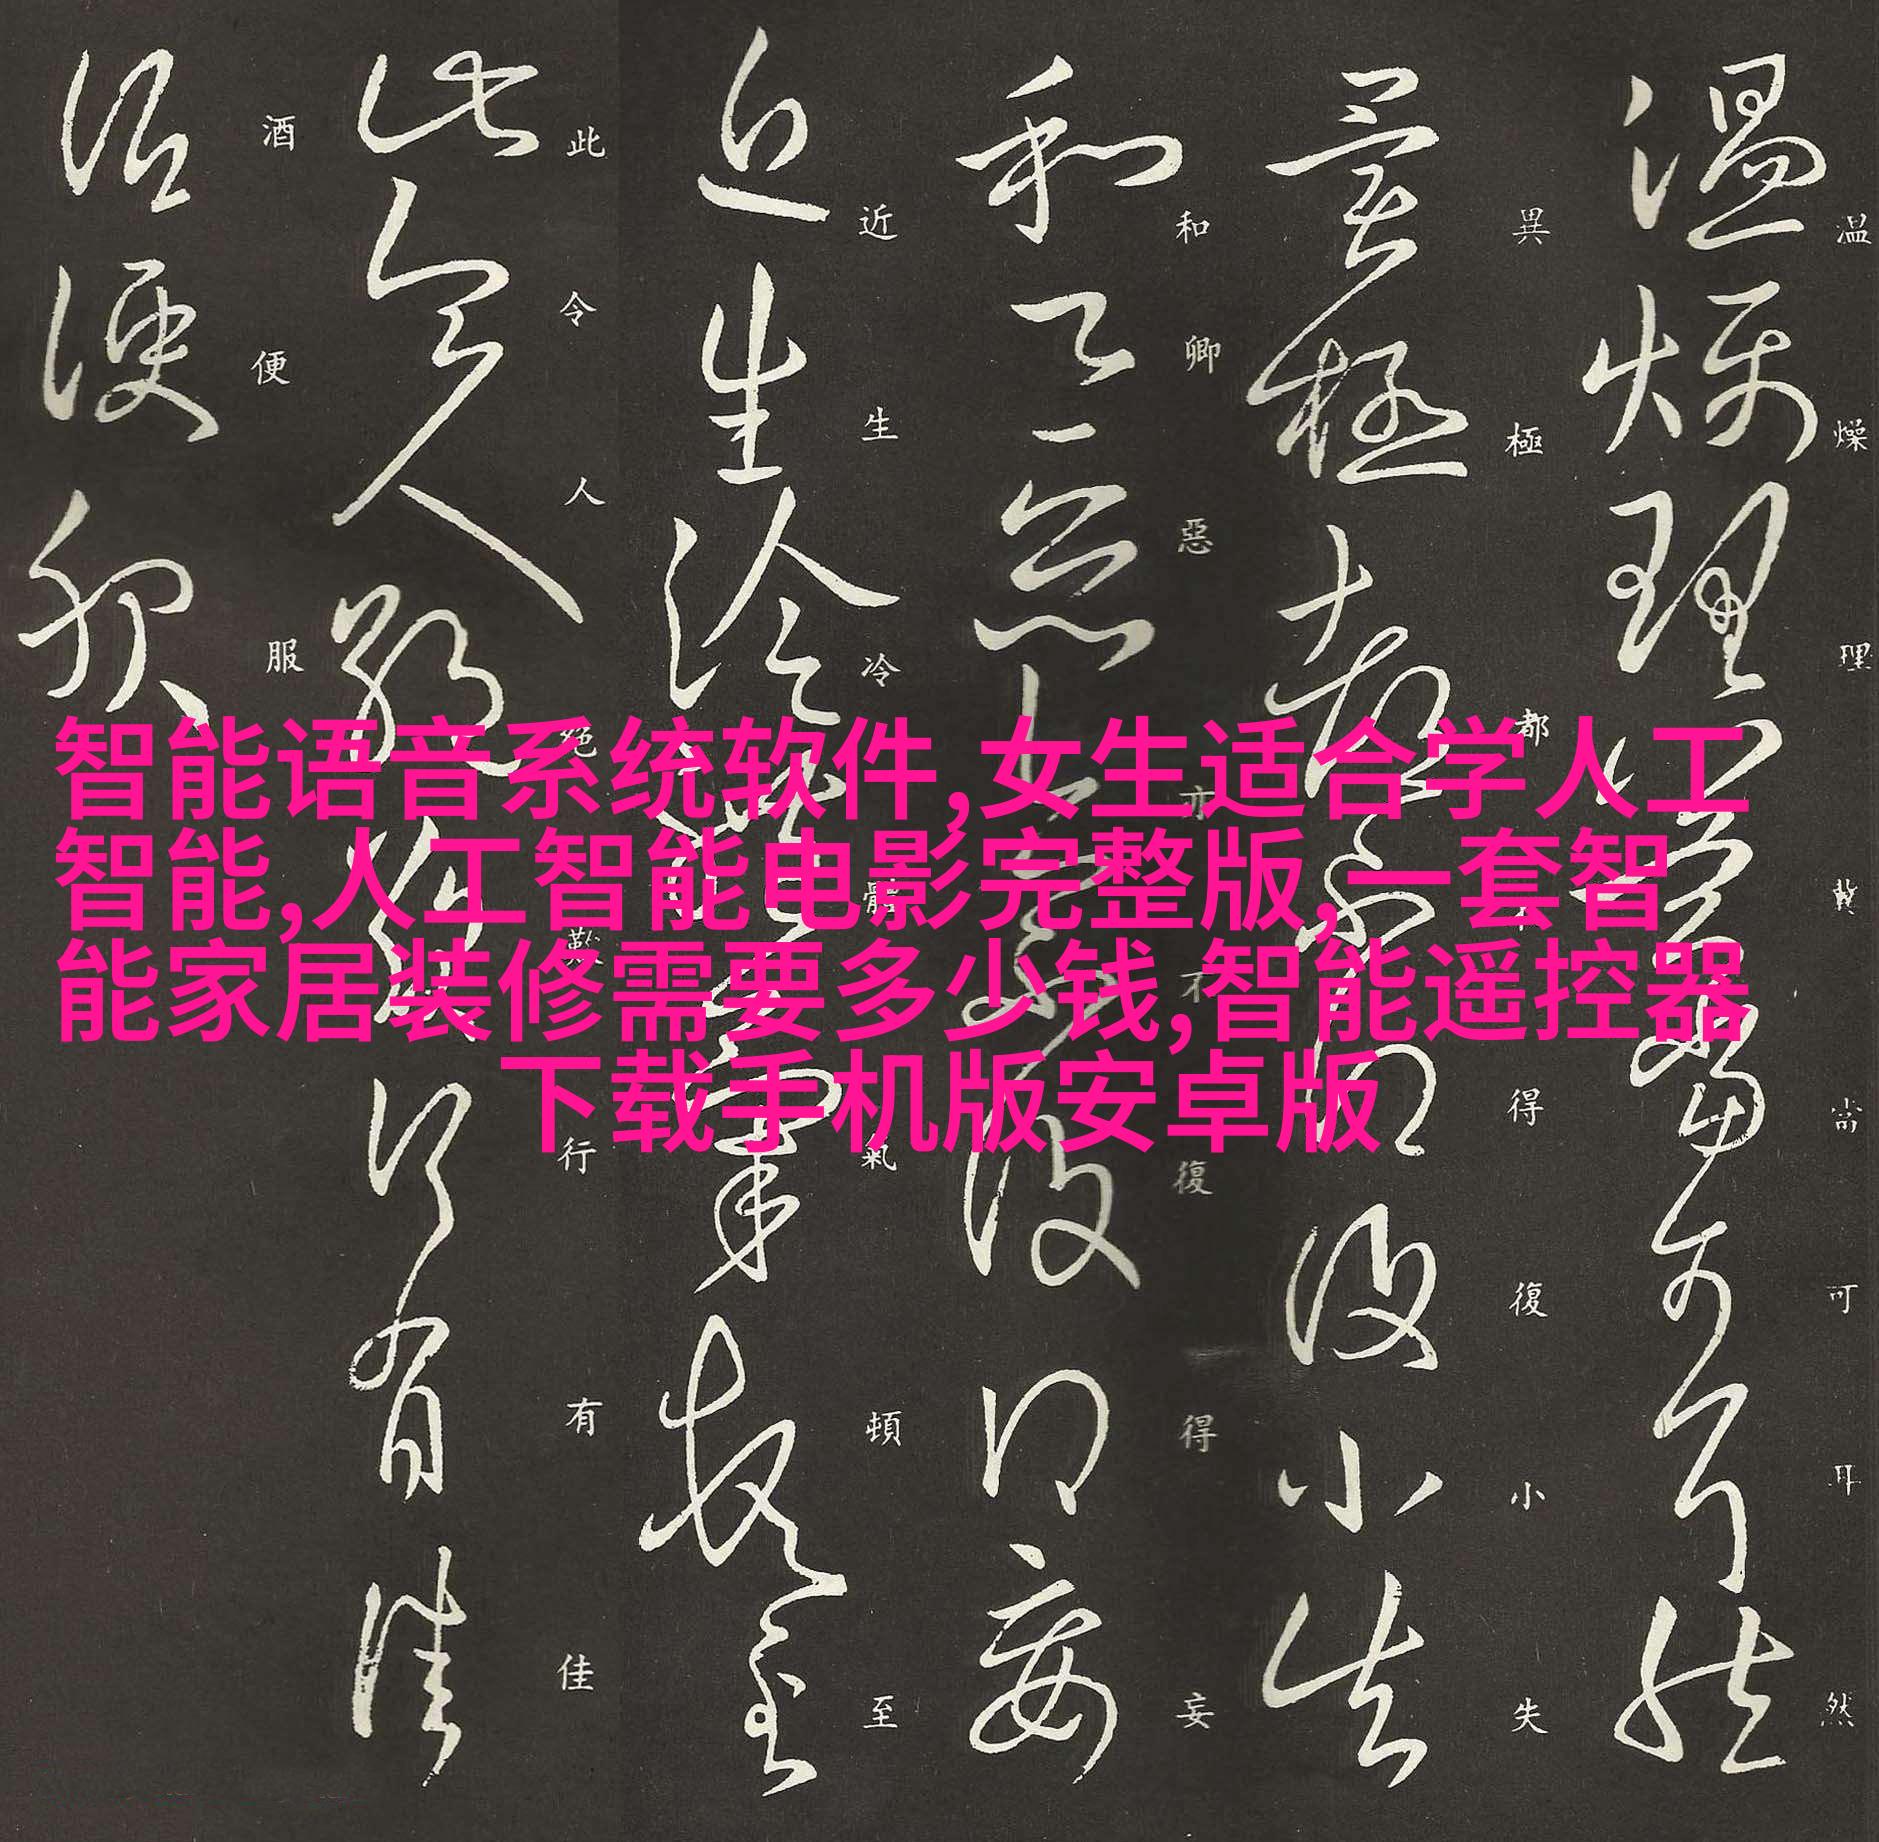 智能语音系统软件,女生适合学人工
智能,人工智能电影完整版,一套智
能家居装修需要多少钱,智能遥控器
下载手机版安卓版
温燥理冀當可耳然
異極都不得復小失
和卿惡亦不復得妄
近生冷體氣頓至
此令人絕歎行有佳
酒便服